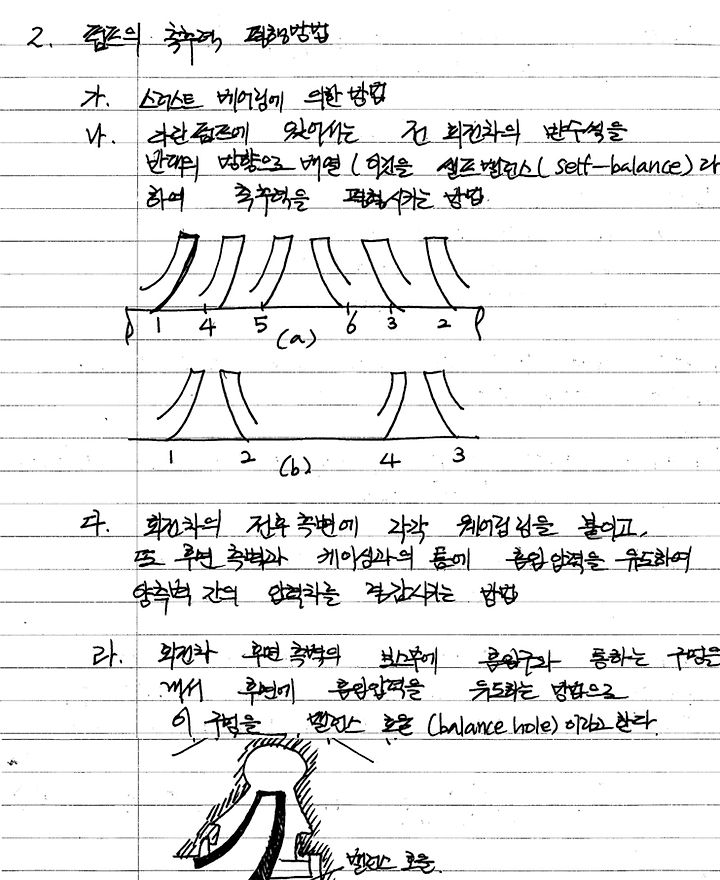 2. 펌프의 축추력 평형방법
가. 스러스트 베어링에 의한 방법
나. 다단펌프에 있어서는 전 회전차의 반수씩을
반대의 방향으로 배열 (이것을 셀프밸런스(self-balance)라
하여 축추력을 평형시키는 방법
1 4 5 6 3 2
(a)
1 2 4 3
(b)
다. 회전차의 전후 측벽에 각각 웨어링링을 붙이고,
또 후면 측벽과 케이싱과의 틈에 흡입압력을 유도하여
양측벽 간의 압력차를 경감시키는 방법
라. 회전차 후면 측벽의 보스부에 흡입구와 통하는 구멍을
내서 후면에 흡입압력을 유도하는 방법으로
이 구멍을 밸런스 호올 (balance hole)이라고 한다.
밸런스 호올.